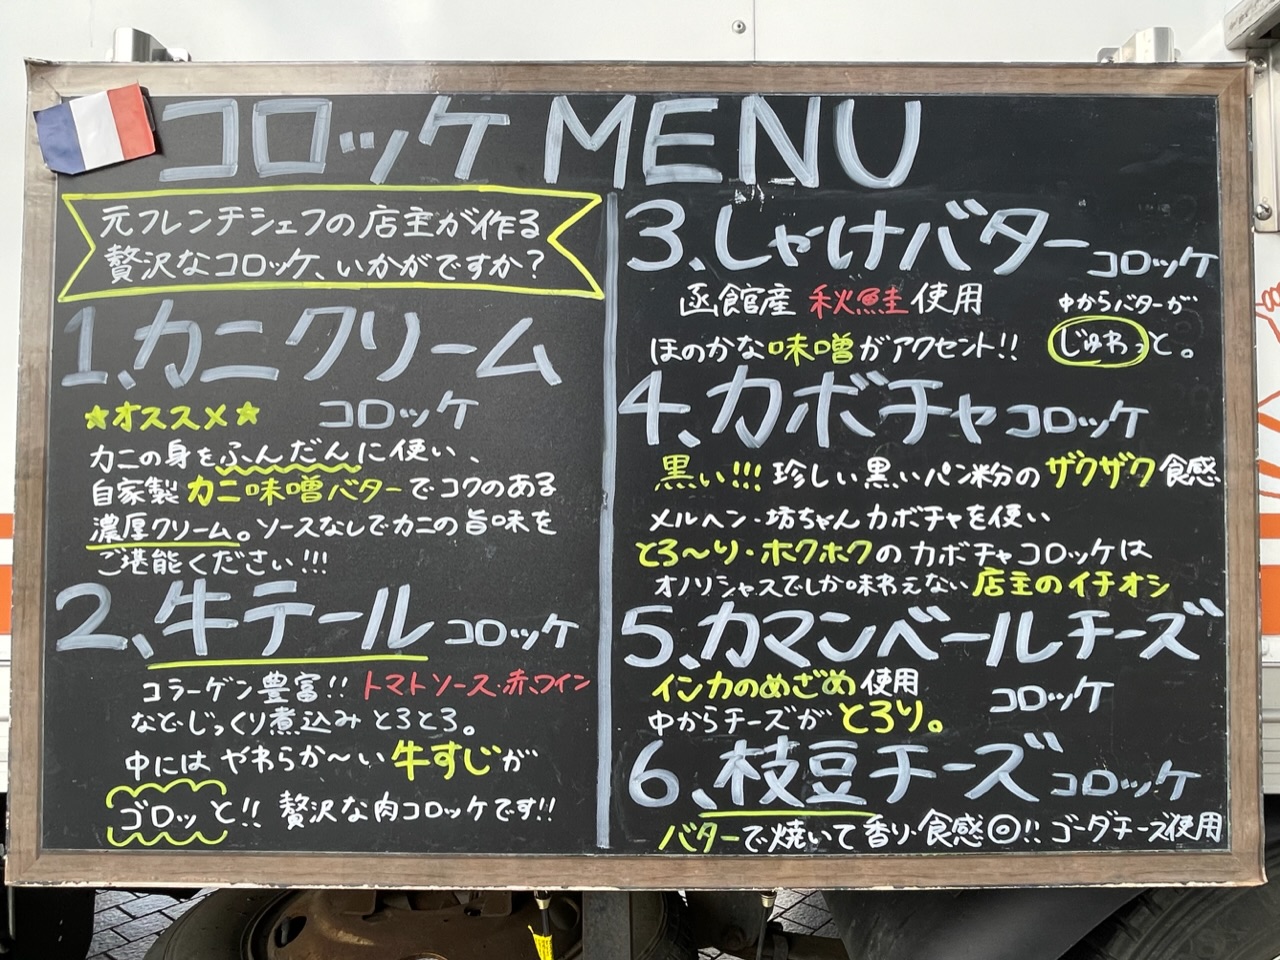 コロッケMENU
元フレンチシェフの店主が作る
贅沢なコロッケ、いかがですか?
1、カニクリーム
★オススメ★ コロッケ
カニの身をふんだんに使い、
自家製カニ味噌バターでコクのある
濃厚クリーム。ソースなしでカニの旨味を
ご堪能ください!!!
2、牛テールコロッケ
コラーゲン豊富!!トマトソース・赤ワイン
などじっくり煮込みとろとろ。
中にはやわらか〜い牛すじが
ゴロッと!!贅沢な肉コロッケです!!
3、しゃけバターコロッケ
函館産秋鮭使用
ほのかな味噌がアクセント!!
中からバターが
じゅわっと。
4、カボチャコロッケ
黒い!!!珍しい黒いパン粉のザクザク食感
メルヘン・坊ちゃんカボチャを使い
とろ〜り・ホクホクのカボチャコロッケは
オノリシャスでしか味わえない店主のイチオシ
5、カマンベールチーズ
コロッケ
インカのめざめ使用
中からチーズがとろり。
6、枝豆チーズコロッケ
バターで焼いて香り・食感◎!!ゴーダチーズ使用